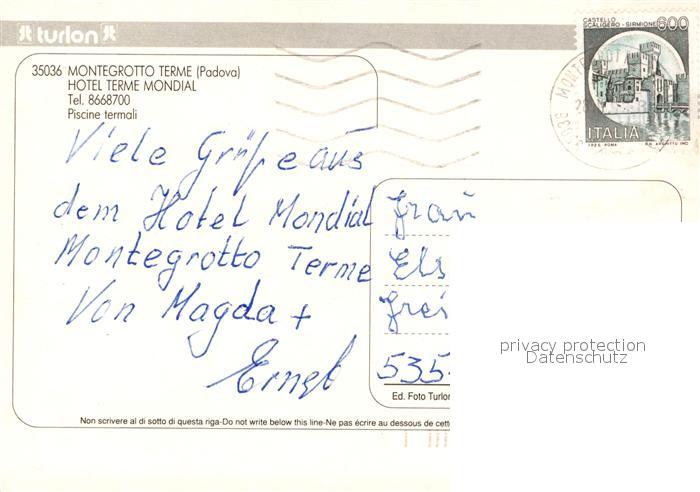 turlon
CASTELLO
SCALIGERO - SIRMIONE 600
35036 MONTEGROTTO TERME (Padova)
HOTEL TERME MONDIAL
Tel. 8668700
Piscine termali
ITALIA
Viele Grüße aus
dem Hotel Mondial
Montegrotto Terme
Von Magda +
Ernst
Frau
Els
535
privacy protection
Datenschutz
Ed. Foto Turlon
Non scrivere al di sotto di questa riga-Do not write below this line-Ne pas écrire au dessous de cette